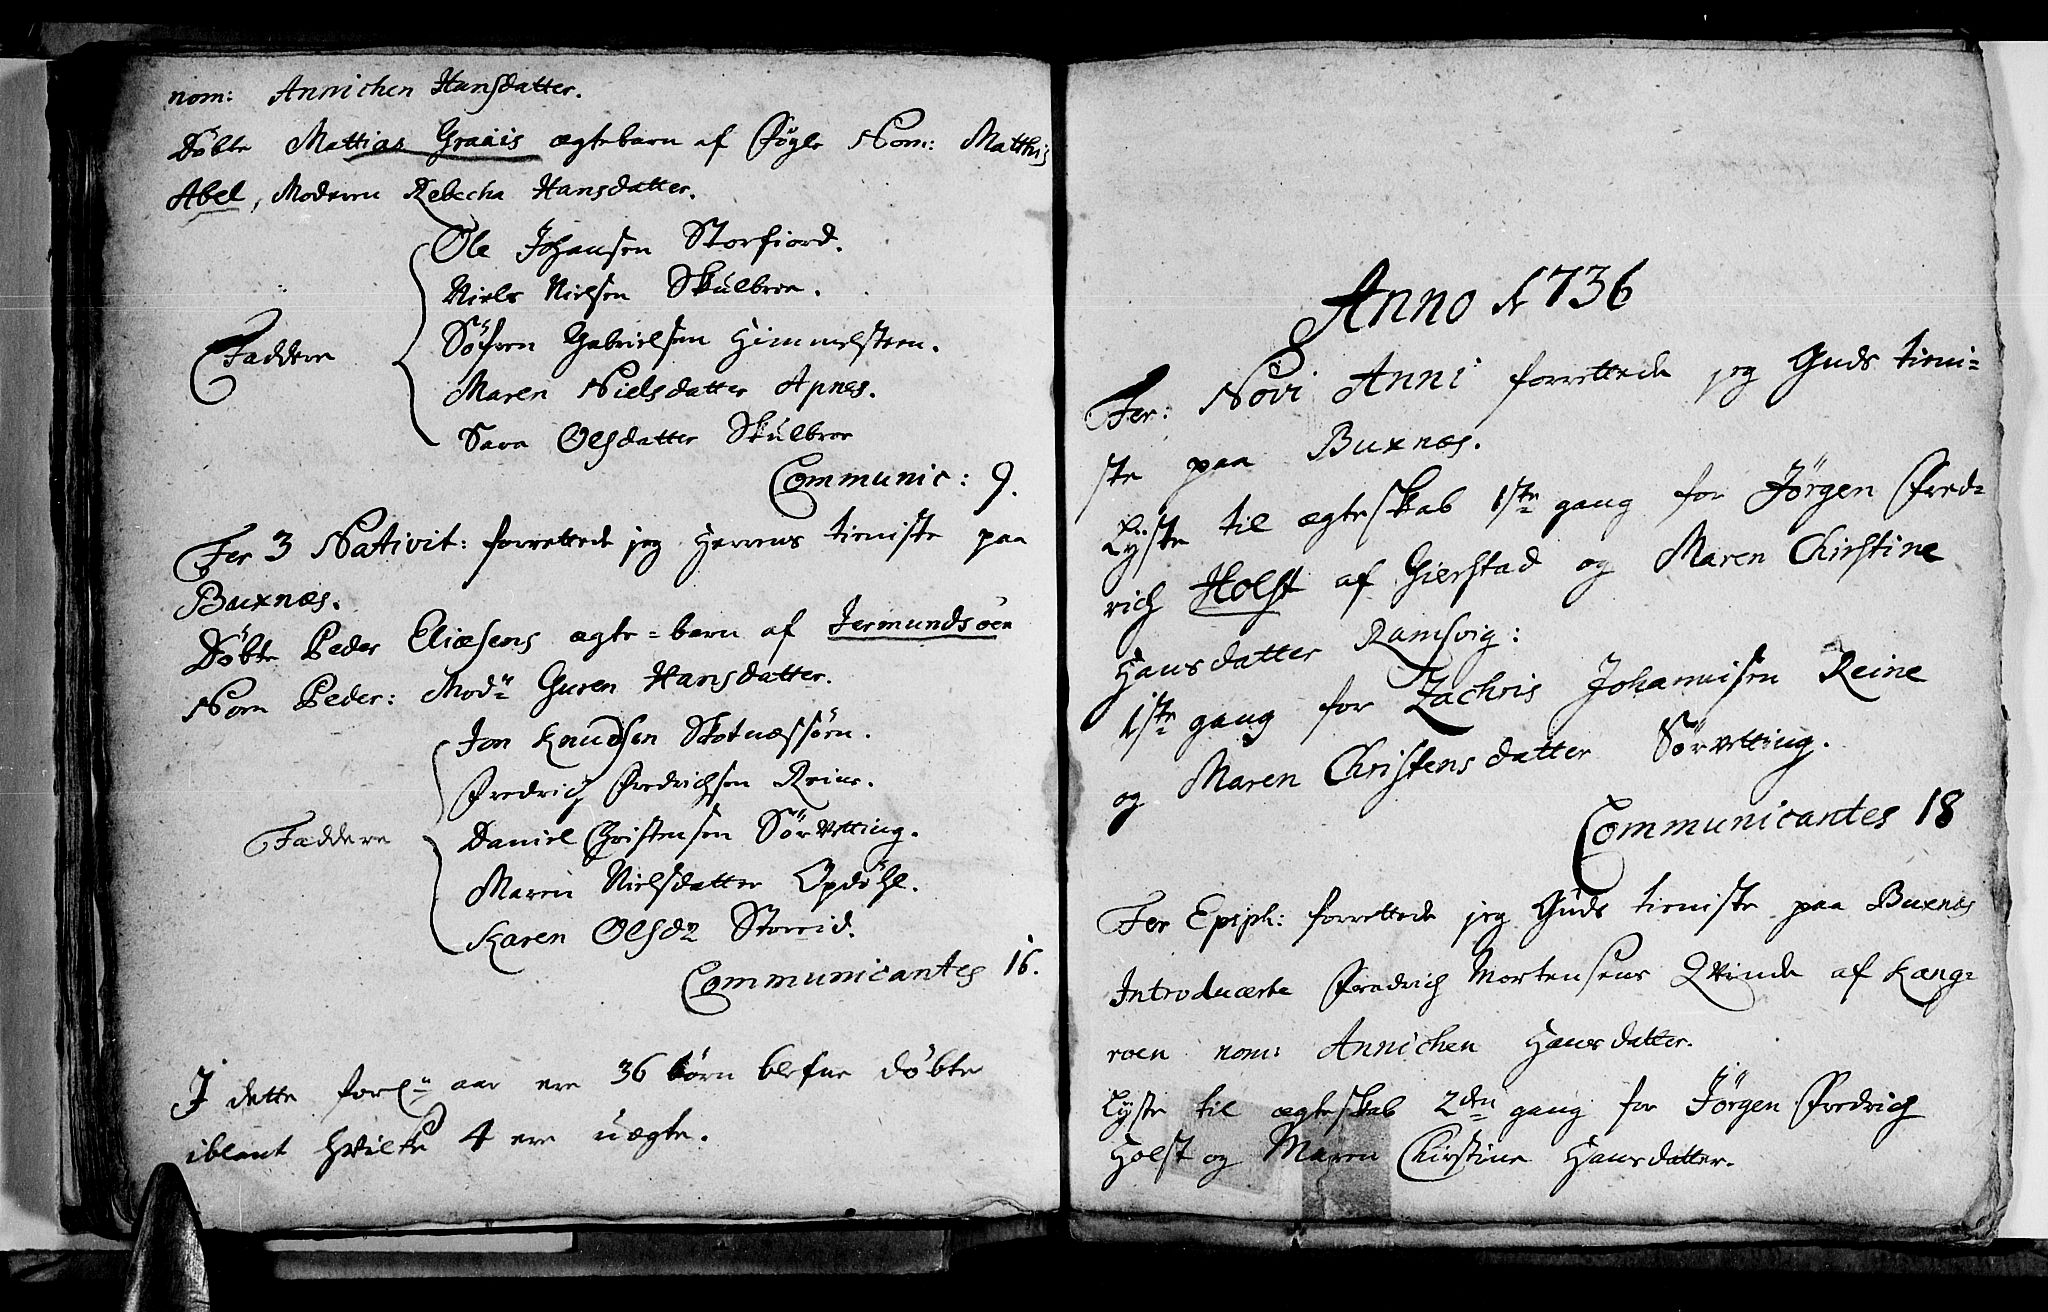 nom: Annichen Hansdatter.
Døbte Mattias Graais ægtebarn af Fygle Nom: Matthis
Abel, Moderen Rebecha Hansdatter.
Ole Johansen Storfiord.
Niels Nielsen Skulbroe.
Søfren Gabrielsen Himmelsteen.
Faddere
Maren Nielsdatter Apnes.
Sara Olsdatter Skulbroe
Communic: 9.
Fer 3 Nativit: forrettede jeg Herrens tieniste paa
Buxnæs.
Døbte Peder Eliæsens ægte-barn af Jermundsøen
Nom Peder: Mod: Guren Hansdatter.
Jon Knudsen Skotnæssøen.
Fredrich Fredrichsen Reine.
Faddere
Daniel Christensen Sørvetting.
Maren Nielsdatter Opdøhl.
Karen Olsd: Storeid.
Communicantes 16.
I dette forl: aar ere 36 børn blefne døbte
iblant hvilke 4 ere uægte.
Anno 1736
Fer: Novi Anni forrettede jeg Guds tieni-
ste paa Buxnæs.
Lyste til ægteskab 1ste gang for Jørgen Fred-
rich Holst af Gierstad og Maren Chirstine
Hansdatter Ramsvig:
1ste gang for Zachris Johannisen Reine
og Maren Christensdatter Sørvetting.
Communicantes 18
Fer Epiph: forrettede jeg Guds tieniste paa Buxnæs
Introducerte Fredrich Mortensens Qvinde af Kang-
roen nom: Annichen Hansdatter.
Lyste til ægteskab 2den gang for Jørgen Fredrich
Holst og Maren Chirstine Hansdatter.